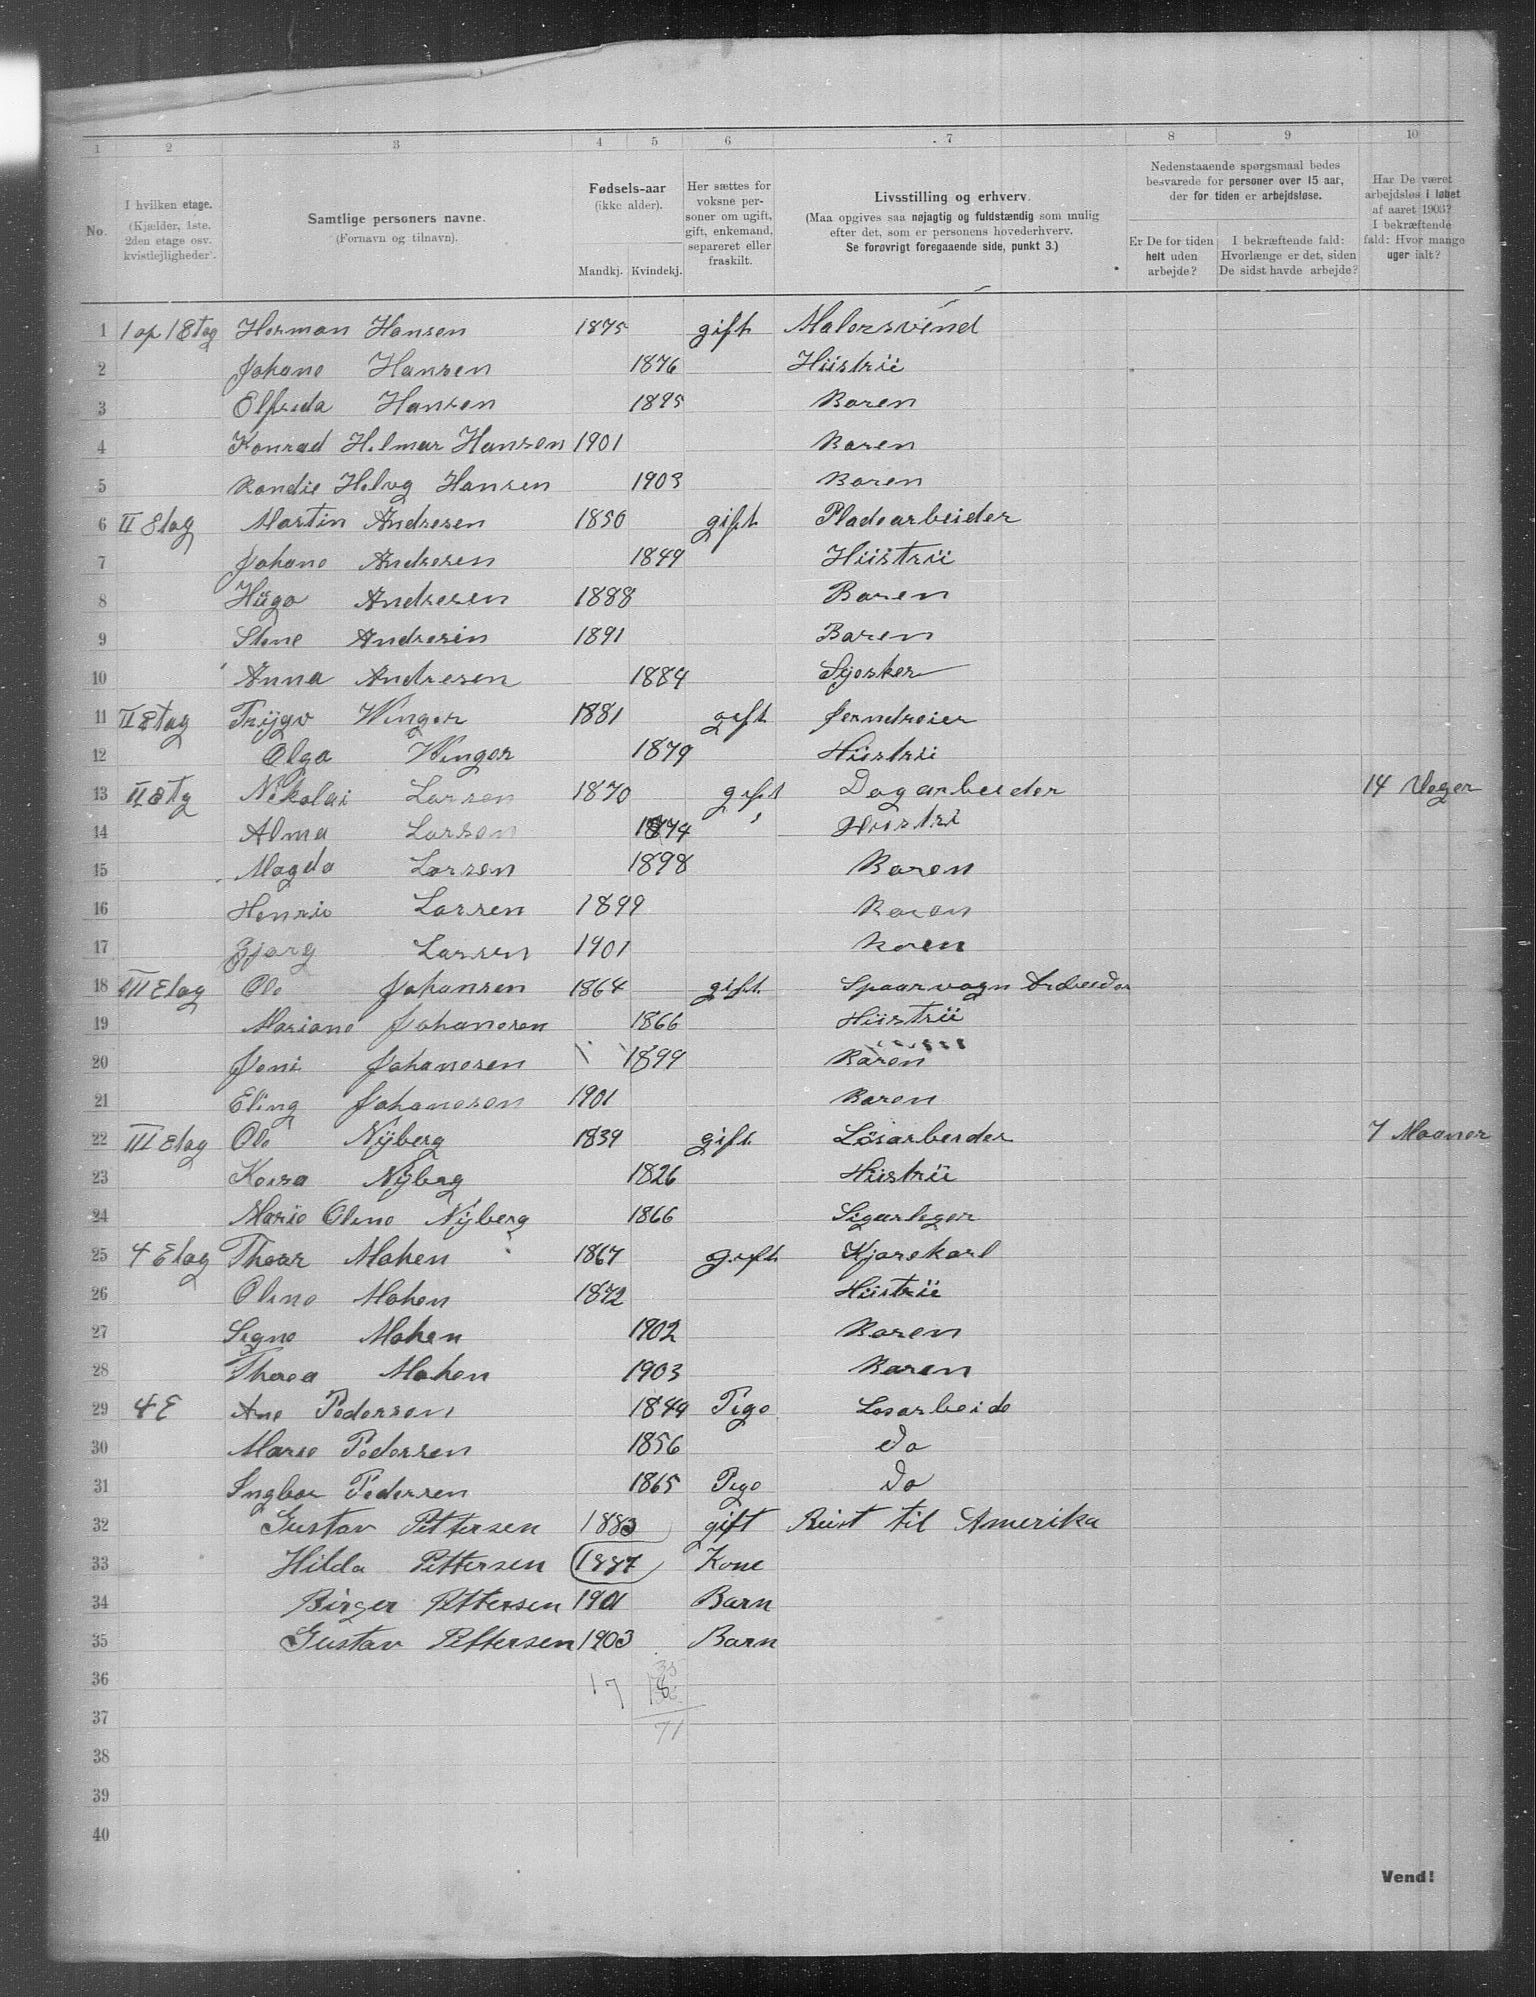 1 2 3 4 5 6 7 8 9 10
No.
I hvilken etage. (Kjælder, 1ste, 2den etage osv. kvistlejligheder).
Samtlige personers navne. (Fornavn og tilnavn).
Fødsels-aar (ikke alder). Mandkj. Kvindekj.
Her sættes for voksne personer om ugift, gift, enkemand, separeret eller fraskilt.
Livsstilling og erhverv. (Maa opgives saa nøjagtig og fuldstændig som mulig efter det, som er personens hovederhverv. Se forøvrigt foregaaende side, punkt 3.)
Nedenstaaende spørgsmaal bedes besvarede for personer over 15 aar, der for tiden er arbejdsløse.
Er De for tiden helt uden arbejde?
I bekræftende fald: Hvorlænge er det, siden De sidst havde arbejde?
Har De været arbejdsløs i løbet af aaret 1903? I bekræftende fald: Hvor mange uger ialt?
1 1 op 1 Etag Herman Hansen 1875 gift Malersvend
2 Johane Hansen 1876 Hüstrü
3 Elfrida Hansen 1895 Baren
4 Konrad Hilmar Hansen 1901 Baren
5 Randie Helvg Hansen 1903 Baren
6 II Etag Martin Andresen 1850 gift Pladearbeider
7 Johane Andresen 1849 Hüstrü
8 Hügo Andresen 1888 Baren
9 Stene Andresin 1891 Baren
10 Anna Andresen 1884 Syesker
11 II Etag Trÿgv Winger 1881 gift Jerndreier
12 Olga Winger 1879 Hüstrü
13 II Etg Nikolai Larsen 1870 gift Dagarbeider 14 Uger
14 Alma Larsen 1874 Hüstri
15 Magda Larsen 1898 Baren
16 Henrie Larsen 1899 Baren
17 Bjarg Larsen 1901 Baren
18 III Etag Ole Johansen 1864 gift Spaarvagn Arbeider
19 Mariane Johanesen 1866 Hüstrü
20 Jeni Johanesen 1899 Baren
21 Eling Johanesen 1901 Baren
22 III Etag Ole Nÿberg 1839 gift Lösarbeider 7 Maaner
23 Kaisa Nÿberg 1826 Hüstrü
24 Marie Oline Nÿberg 1866 Sigarleger
25 4 Etag Thoar Mohen 1867 gift Kjørekarl
26 Oline Mohen 1872 Hüstrü
27 Signe Mohen 1902 Baren
28 Thorea Mohen 1903 Baren
29 4 E Ane Pedersen 1849 Pige Løsarbeide
30 Marie Pedersen 1856 Do
31 Ingbor Pedersen 1865 Pige Do
32 Gustav Pettersen 1883 gift Reist til Amerika
33 Hilda Pettersen 1887 Kone
34 Birger Pettersen 1901 Barn
35 Gustav Pettersen 1903 Barn
36 17 18
37 71
38
39
40
Vend!